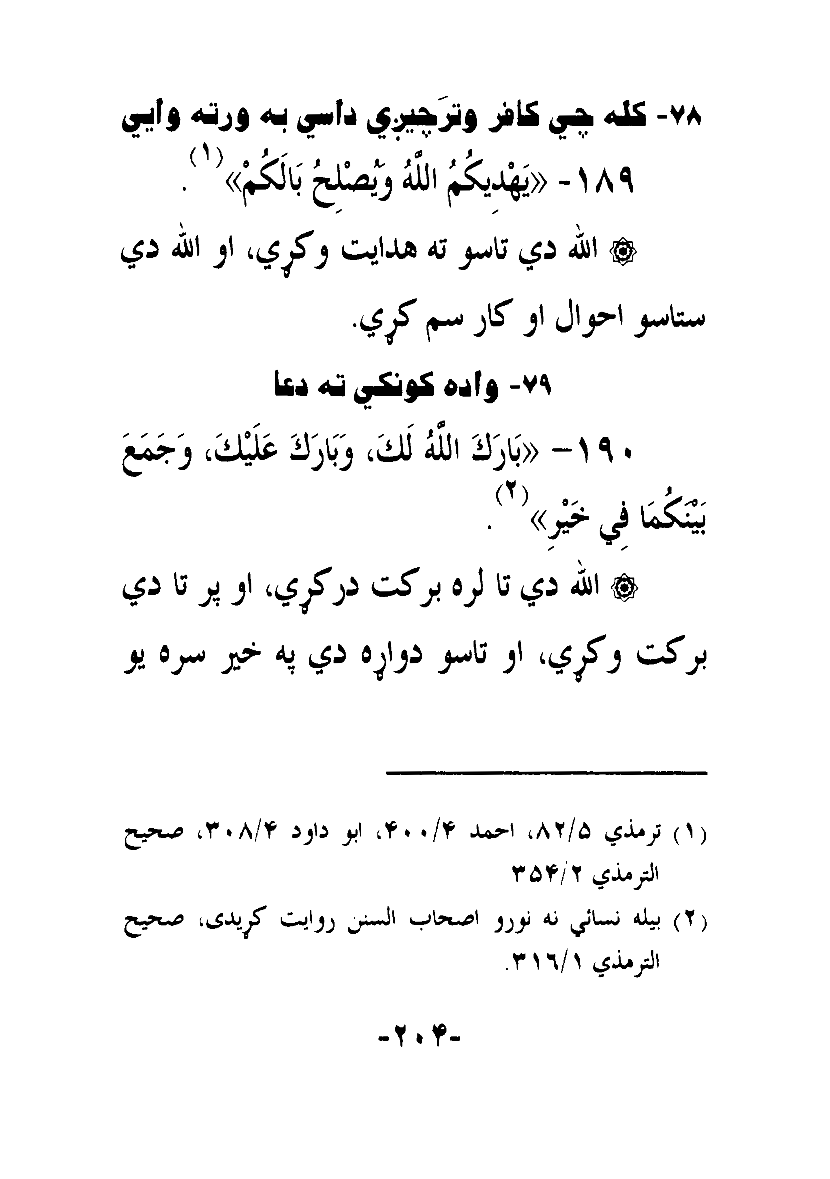 ٧٨- کله چي کافر وترَچيږي داسي به ورته وايي
١٨٩- «يَهْدِيكُمُ اللَّهُ وَيُصْلِحُ بَالَكُمْ»(١).
۞ الله دي تاسو ته هدايت وکړي، او الله دي
ستاسو احوال او کار سم کړي.
٧٩- واده کونکي ته دعا
١٩٠- «بَارَكَ اللَّهُ لَكَ، وَبَارَكَ عَلَيْكَ، وَجَمَعَ
بَيْنَكُمَا فِي خَيْرِ»(٢).
۞ الله دي تا لره برکت درکړي، او پر تا دي
برکت وکړي، او تاسو دواړه دي په خير سره يو
(١) ترمذي ٨٢/۵، احمد ۴٠٠/۴، ابو داود ٣٠٨/۴، صحيح
الترمذي ٣۵۴/٢
(٢) بيله نسائي نه نورو اصحاب السنن روايت کړيدی، صحيح
الترمذي ٣١٦/١.
-٢٠۴-